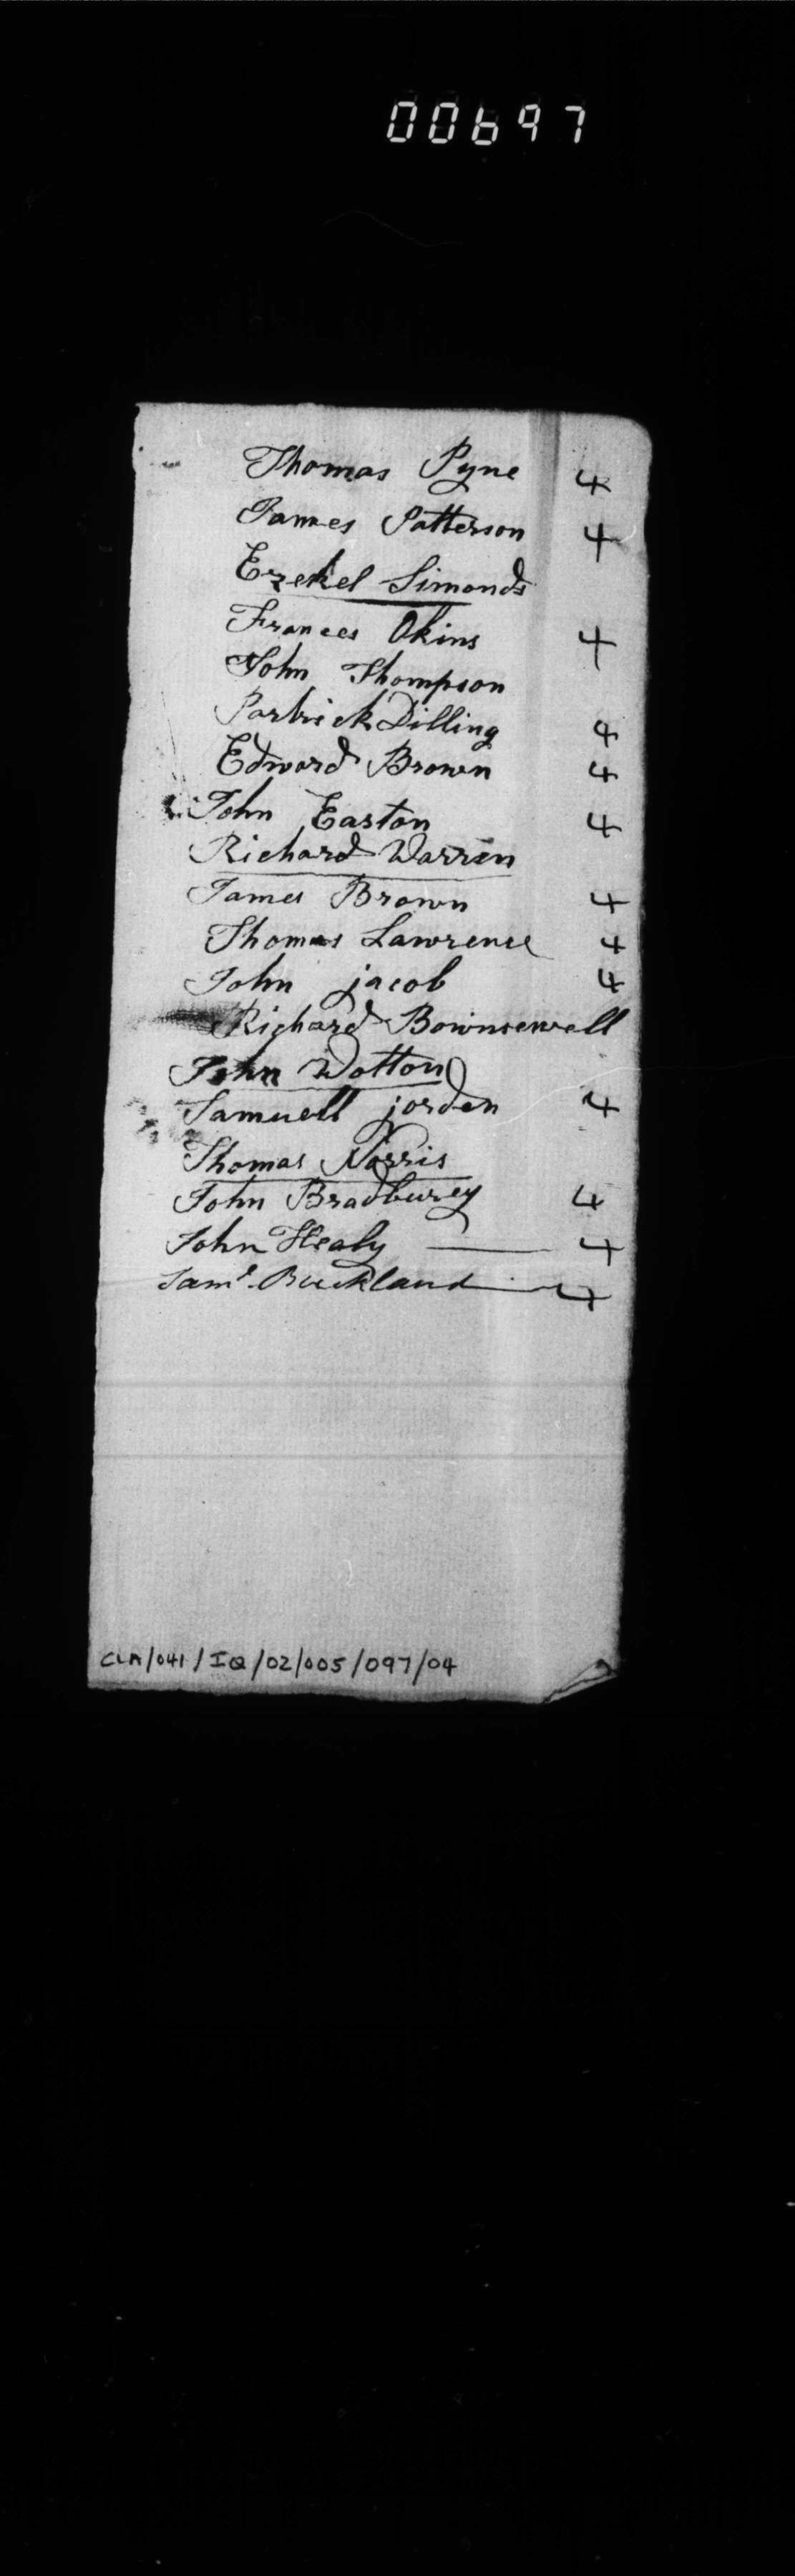 00697
Thomas Pyne 4
James Patterson 4
Ezekel Simonds
Frances Okins 4
John Thompson
Partrick Dilling 4
Edward Brown 4
John Easton 4
Richard Warren
James Brown 4
Thomas Lawrence 4
John jacob 4
Richard Bownsewell
John Wotton
Samuell jorden 4
Thomas Norris
John Bradburey 4
John Healy 4
Saml. Buckland 4
CLA/041/IQ/02/005/097/04